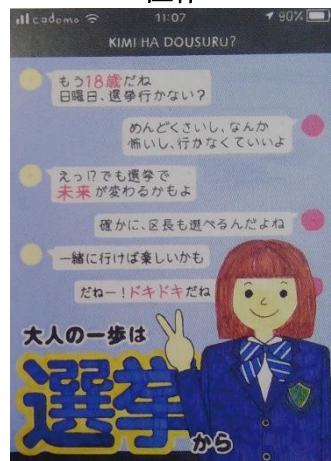 cadomo
11:07
90%
KIMI HA DOUSURU?
もう18歳だね
日曜日、選挙行かない?
めんどくさいし、なんか
怖いし、行かなくていいよ
えっ!?でも選挙で
未来が変わるかもよ
確かに、区長も選べるんだよね
一緒に行けば楽しいかも
だねー!ドキドキだね
大人の一歩は
選挙
から